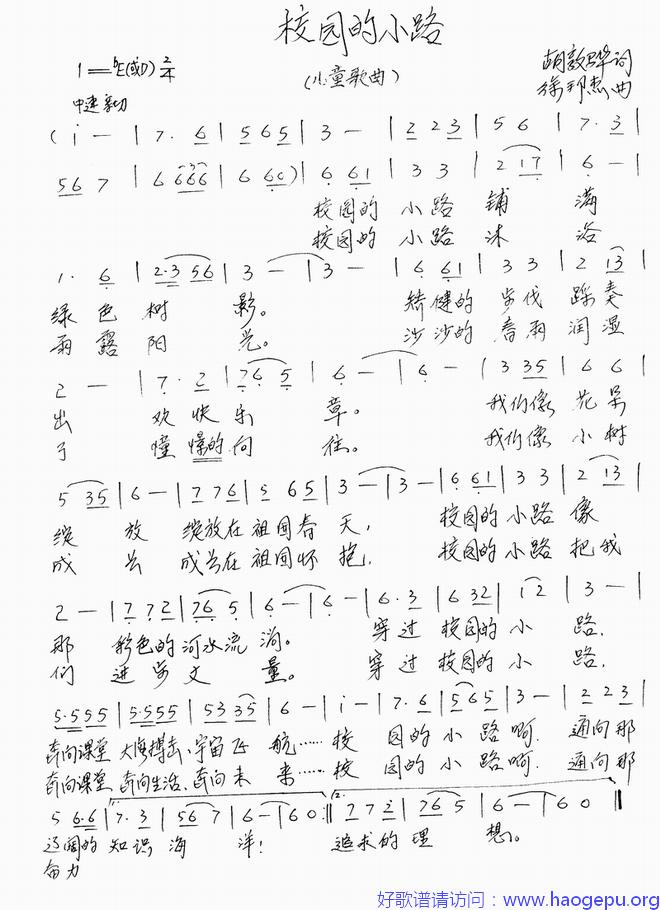 校园的小路
(儿童歌曲)
1=♭E(或D) 2/4
胡敦骅词
徐邦杰曲
中速
(i — | 7. 6 | 5 6 5 | 3 — | 2 2 3 | 5 6 | 7. 3 |
5 6 7 | 6 6 6 6 | 6 6 0) | 6 6 1 | 3 3 | 2 1 7 | 6 — |
校园的 小路 铺 满
校园的 小路 沐 浴
1. 6 | 2. 3 5 6 | 3 — | 3 — | 6 6 1 | 3 3 | 2 1 3 |
绿色树 影。 矫健的 步伐 踩奏
雨露阳 光。 沙沙的 春雨 润湿
2 — | 7. 2 | 7 6 5 | 6 — | 6 — | 3 3 5 | 6 6 |
出 欢快乐 章。 我们像 花朵
了 憧憬的向 往。 我们像 小树
5 3 5 | 6 — | 7 7 6 | 5 6 5 | 3 — | 3 — | 6 6 1 | 3 3 | 2 1 3 |
绽 放 绽放在祖国春 天, 校园的小路 像
成长 成长在祖国怀 抱, 校园的小路 把我
2 — | 7 7 2 | 7 6 5 | 6 — | 6 — | 6. 3 | 6 3 2 | 1 2 | 3 — |
那 彩色的河水流 淌。 穿过 校园的 小 路,
们 进步丈 量。 穿过 校园的 小 路,
5. 5 5 5 | 5. 5 5 5 | 5 3 3 5 | 6 — | i — | 7. 6 | 5 6 5 | 3 — | 2 2 3 |
奔向课堂 大海搏击、宇宙飞 航……校 园的小路啊, 通向那
奔向课堂 奔向生活、奔向未 来……校 园的小路啊, 通向那
5 6. 6 |1. 7. 3 | 5 6 7 | 6 — | 6 0 :|2. 7 7 2 | 7 6 5 | 6 — | 6 0 ‖
辽阔的 知识海 洋! 追求的理 想。
奋力
好歌谱请访问：www.haogepu.org